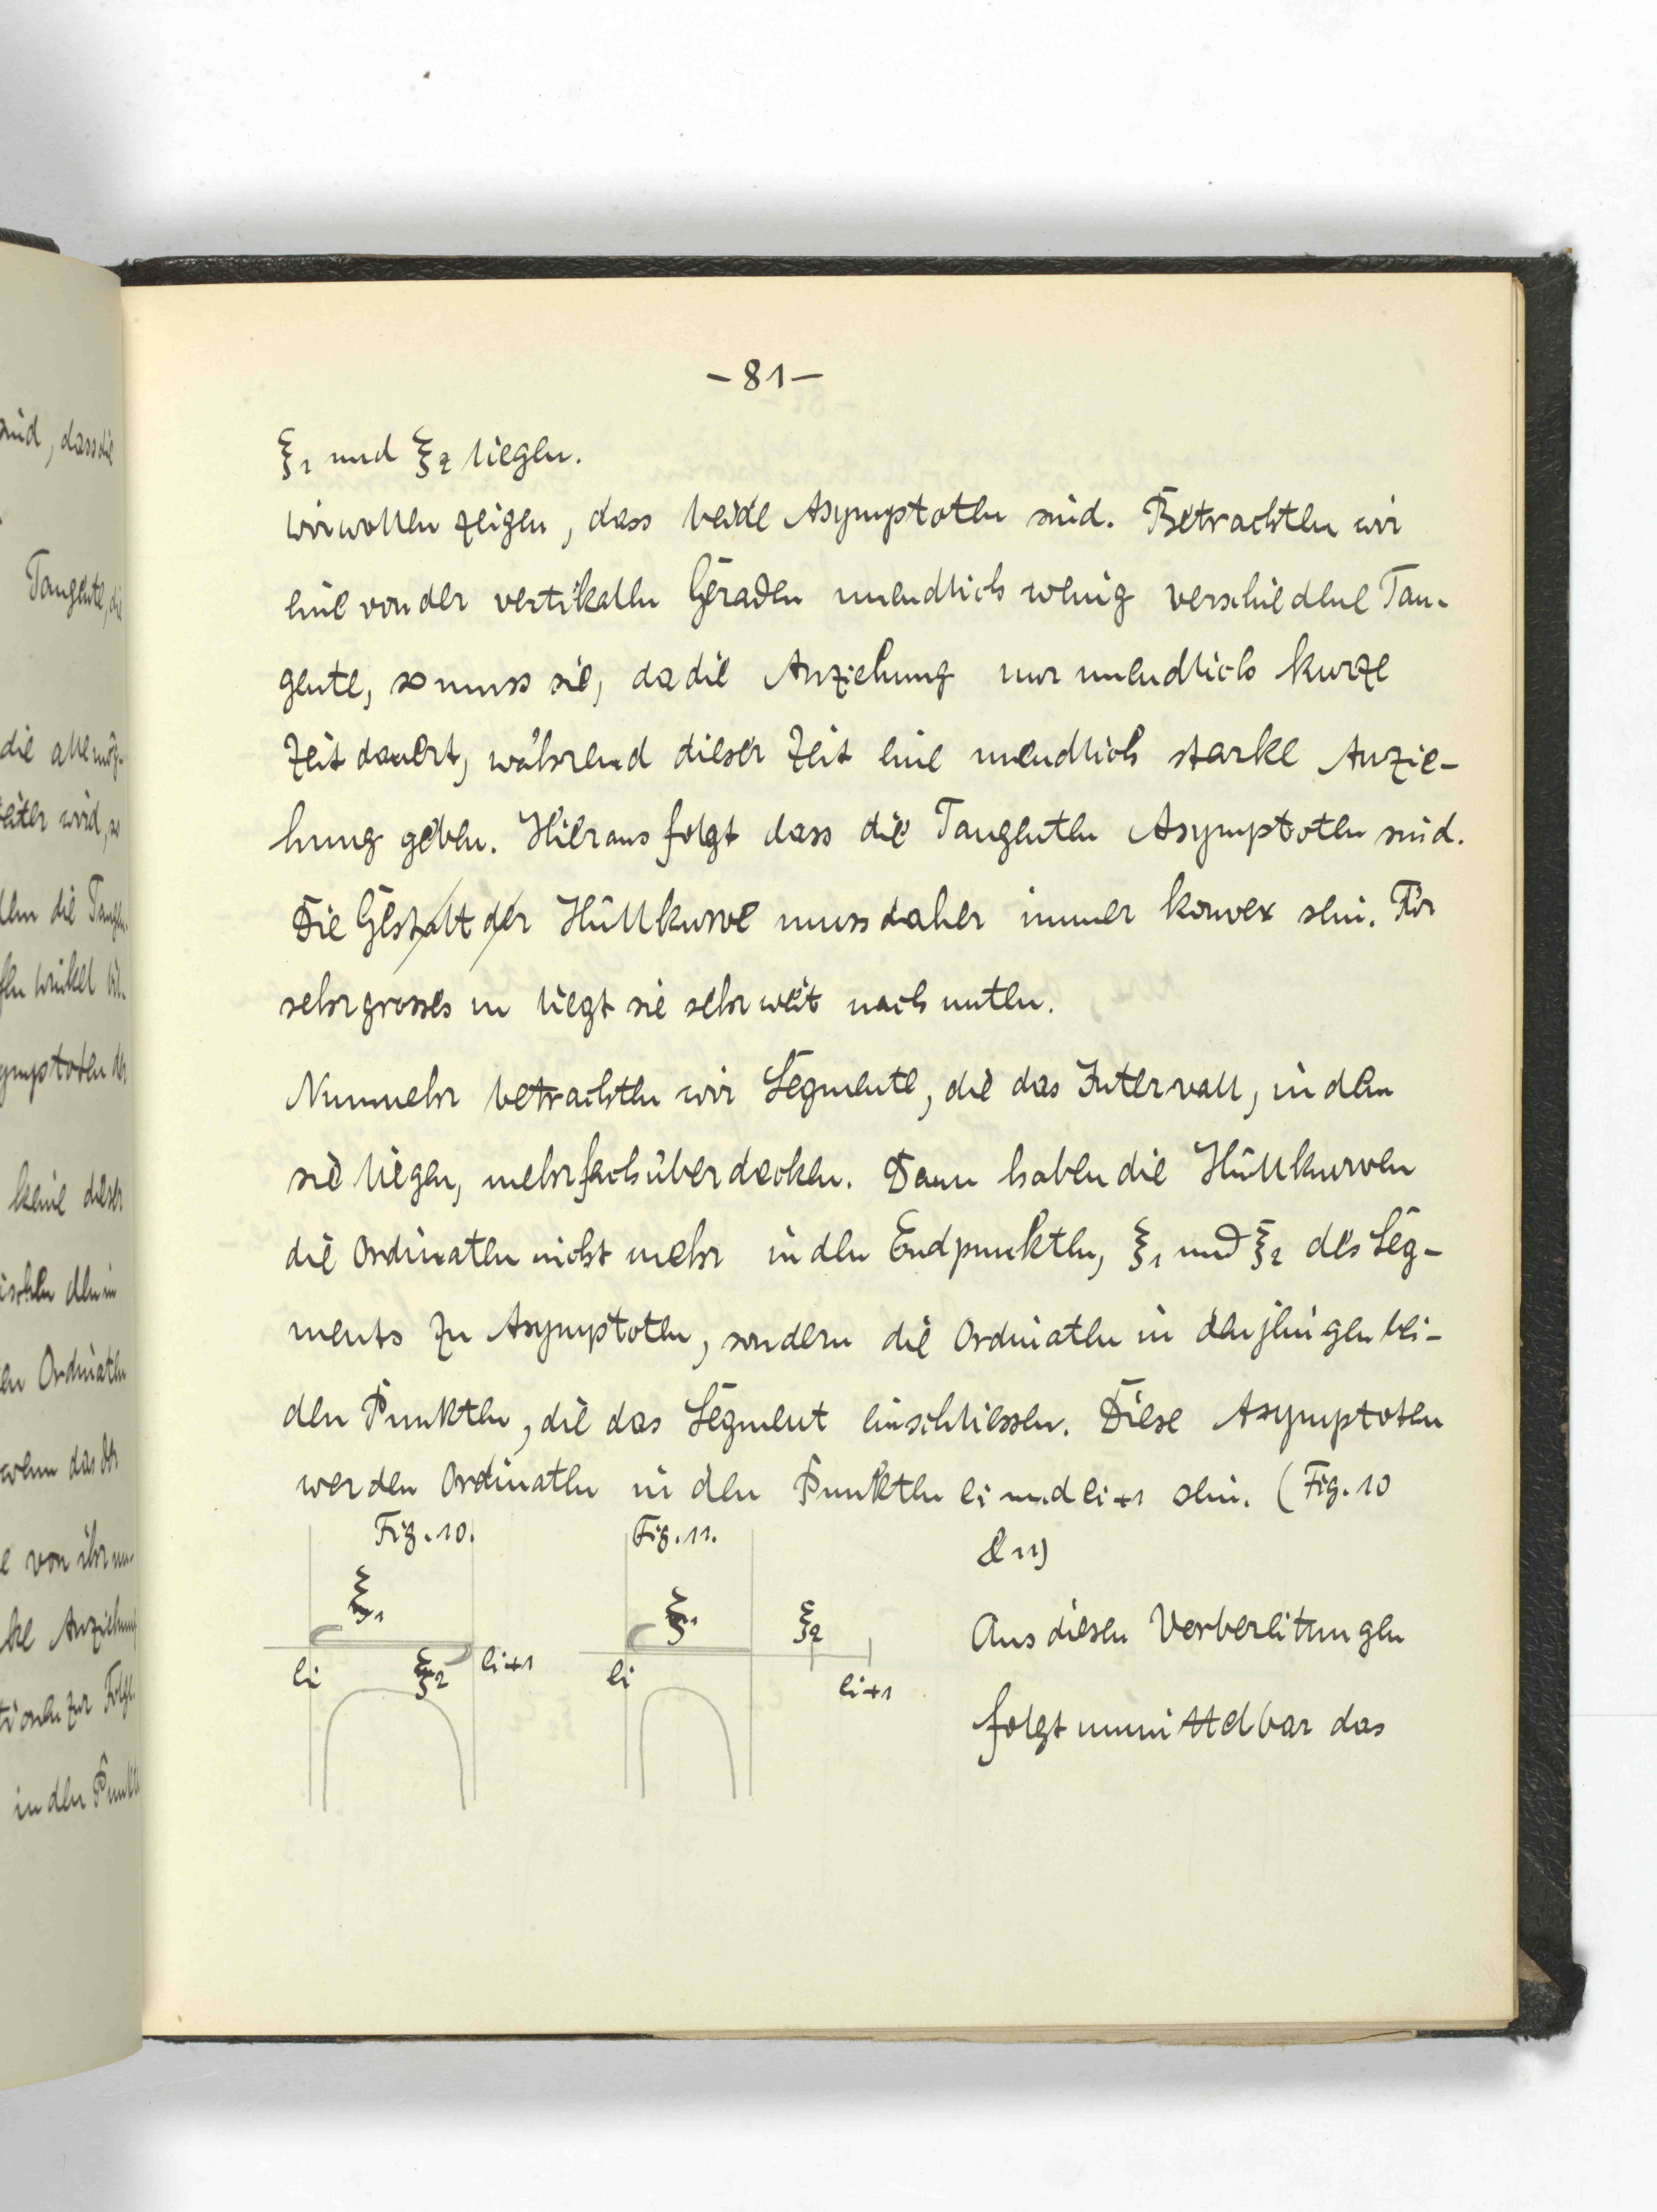 -81-
ξ1 und ξ2 liegen.
wir wollen zeigen, dass beide Asymptoten sind. Betrachten wir
eine von der vertikalen Geraden unendlich wenig verschiedene Tan-
gente, so muss sie, da die Anziehung nur unendlich kurze
Zeit dauert, während dieser Zeit eine unendlich starke Anzie-
hung geben. Hieraus folgt dass die Tangenten Asymptoten sind.
Die Gestalt der Hüllkurve muss daher immer konvex sein. Für
sehr grosses m liegt sie sehr weit nach unten.
Nunmehr betrachten wir Segmente, die das Intervall, in dem
sie liegen, mehrfach überdecken. Dann haben die Hüllkurven
die Ordinaten nicht mehr in den Endpunkten, ξ1 und ξ2 des Seg-
ments zu Asymptoten, sondern die Ordinaten in denjenigen bei-
den Punkten, die das Segment einschliessen. Diese Asymptoten
werden Ordinaten in den Punkten ei und ei+1 sein. (Fig. 10
& 11)
Fig. 10.
ξ1
ei
ξ2
ei+1
Fig. 11.
ξ1
ξ2
ei
ei+1
Aus diesen Vorbereitungen
folgt unmittelbar das
sind, dass die
Tangente, die
weiter wird, so
den die Tangen-
keine dieser
en Ordinaten
wenn das der
e von ihr un-
ke Anziehung
in den Punkte